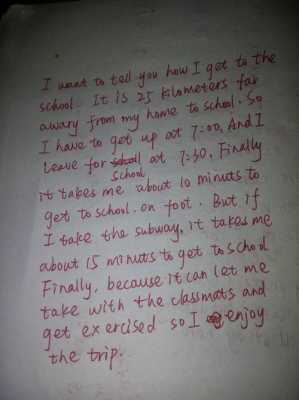 I want to tell you how I get to the
school. It is 25 kilometers far
awary from my home to school. So
I have to get up at 7:00. And I
leave for school at 7:30. Finally
it takes me about 10 minuts to
get to school. on foot. But if
I take the subway, it takes me
about 15 minuts to get to school
Finally, because it can let me
take with the classmats and
get exercised so I enjoy
the trip.